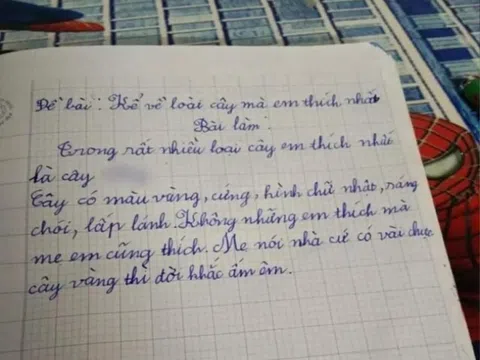 Đề bài: Kể về loài cây mà em thích nhất
Bài làm:
Trong rất nhiều loại cây em thích nhất
là cây
Cây có màu vàng, cứng, hình chữ nhật, sáng
chói, lấp lánh. Không những em thích mà
mẹ em cũng thích. Mẹ nói nhà cứ có vài chục
cây vàng thì đời khắc ấm êm.